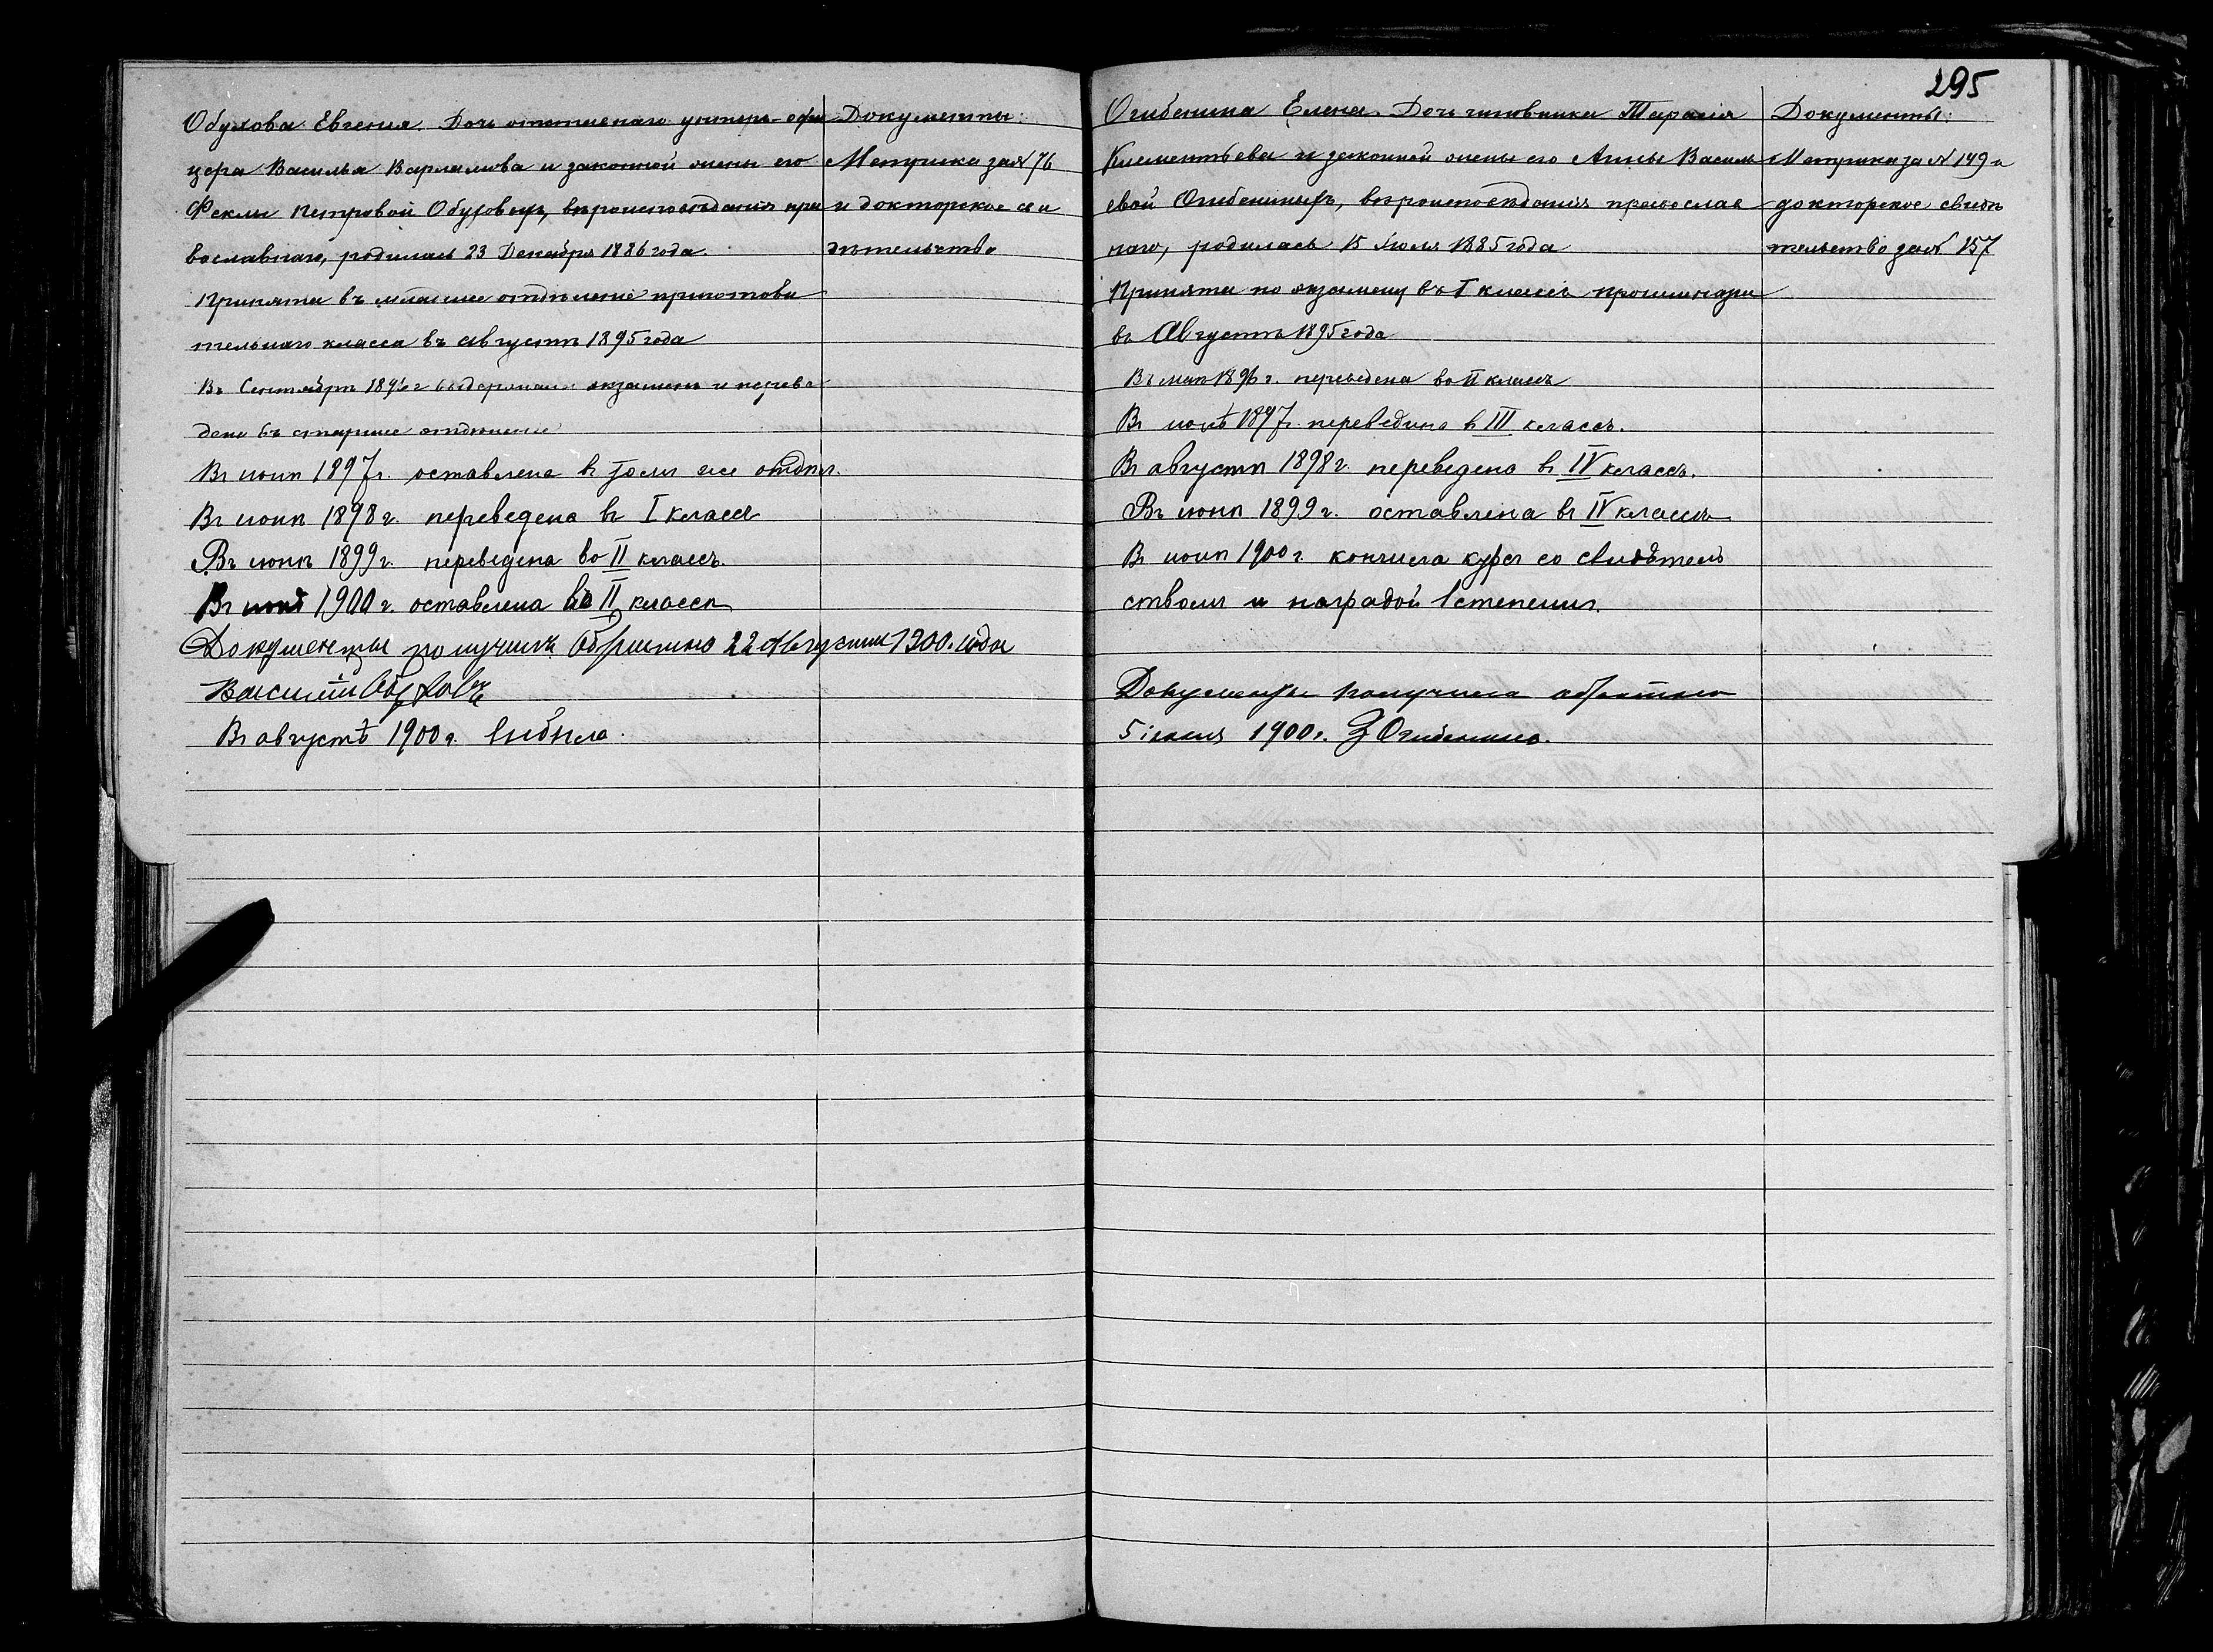 Обухова Евгенія. Дочь отставнаго унтеръ-офи
цера Василья Варламова и законной жены его
Феклы Петровой Обуховыхъ, вѣроисповѣданія пра
вославнаго, родилась 23 Декабря 1886 года.
Принята въ младшее отдѣленіе приготови
тельнаго класса въ августѣ 1895 года
Въ Сентябрѣ 1896 г выдержала экзаменъ и переве
дена въ старшее отдѣленіе
Въ іюнѣ 1897 г. оставлена въ томъ же отдѣл.
Въ іюнѣ 1898 г. переведена въ I классъ
Въ іюнѣ 1899 г. переведена во II классъ.
Въ іюнѣ 1900 г. оставлена во II классѣ
Документы получилъ обратно 22 Августа 1900. года
Василій Обуховъ
Въ августѣ 1900 г. выбыла.
Документы:
Метрика за № 76
и докторское сви
дѣтельство
295
Огибенина Елена. Дочь чиновника Тарасія
Клементьева и законной жены его Анны Василь
евой Огибениныхъ, вѣроисповѣданія православ
наго, родилась 15 Іюля 1885 года
Принята по экзамену въ I классъ прогимназіи
въ Августѣ 1895 года
Въ маѣ 1896 г. переведена во II классъ
Въ іюнѣ 1897 г. переведена в III классъ.
Въ августѣ 1898 г. переведена въ IV классъ.
Въ іюнѣ 1899 г. оставлена въ IV классѣ
Въ іюнѣ 1900 г. кончила курсъ со свидѣтель
ствомъ и наградой 1 степени.
Документы получила обратно
5 іюля 1900 г. Огибенина.
Документы:
Метрика за № 149 и
докторское свидѣ
тельство за № 157